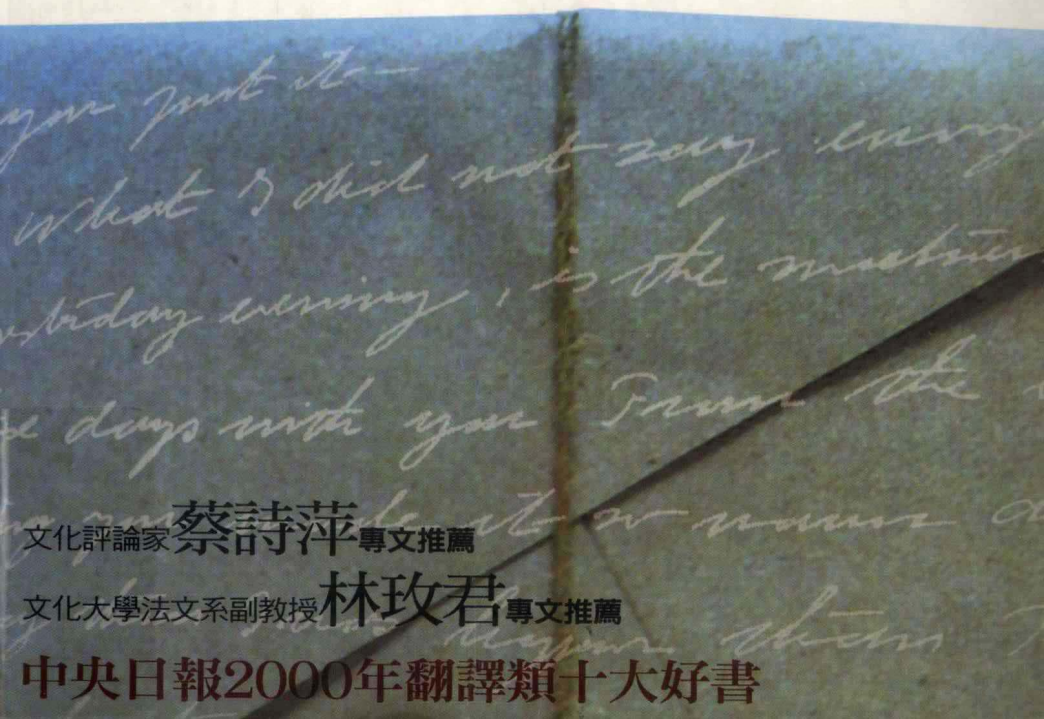 you just it—
what I did not say every
evening, is the
days with you From the
it so
文化評論家蔡詩萍專文推薦
文化大學法文系副教授林玫君專文推薦
than
中央日報2000年翻譯類十大好書